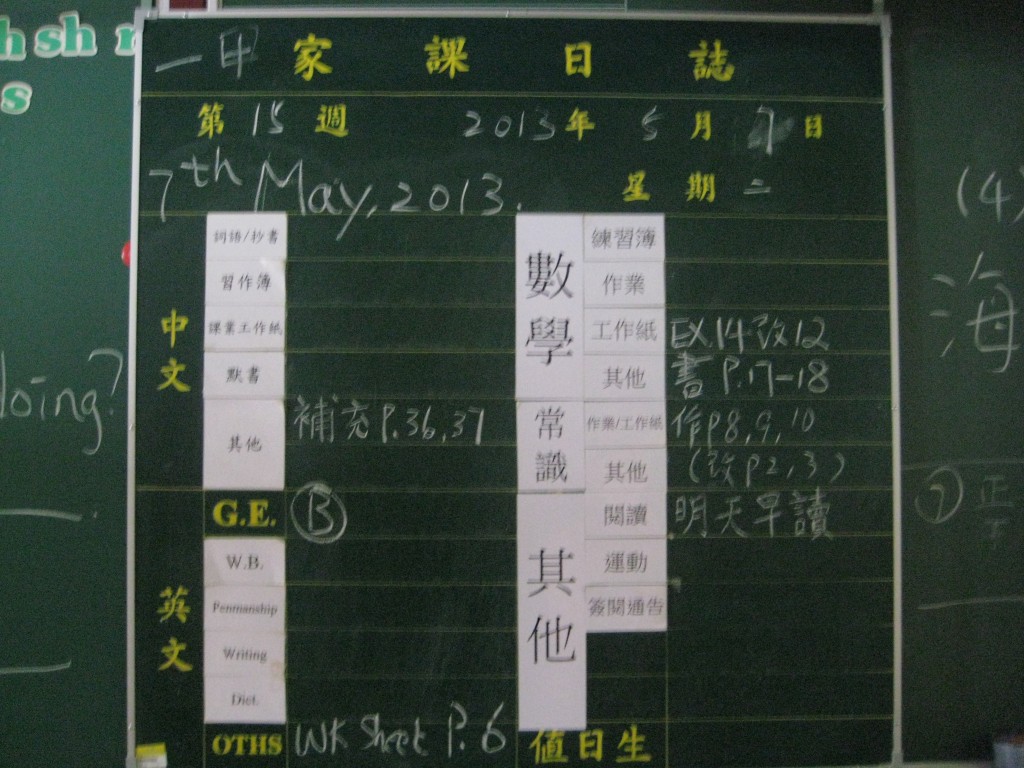 h sh
s
一甲 家課日誌
第 15 週 2013年 5 月 7 日
7th May, 2013.
星期二
中文
詞語/抄書
習作簿
課業工作紙
默書
其他 補充P.36,37
英文
G.E. B
W.B.
Penmanship
Writing
Dict.
OTHS WK Sheet P.6
數學
練習簿
作業
工作紙 EX.14改12
其他 書 P.17-18
常識
作業/工作紙 作P8,9,10
其他 (改P2,3)
其他
閱讀 明天早讀
運動
簽閱通告
值日生
loing?
(4)
海
7